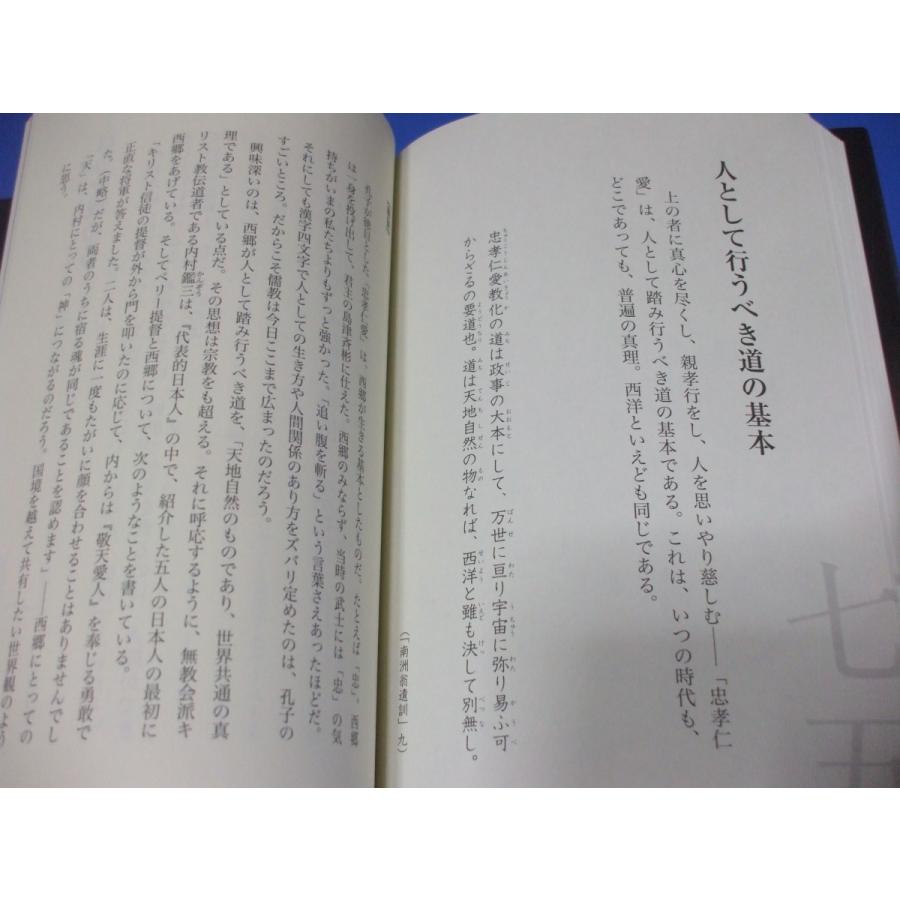 人として行うべき道の基本
上の者に真心を尽くし、親孝行をし、人を思いやり慈しむ──「忠孝仁
愛」は、人として踏み行うべき道の基本である。これは、いつの時代も、
どこであっても、普遍の真理。西洋といえども同じである。
忠孝仁愛教化の道は政事の大本にして、万世に亘り宇宙に弥り易ふ可
からざるの要道也。道は天地自然の物なれば、西洋と雖も決して別無し。
(「南洲翁遺訓」九)
七五
孔子が独自とした「忠孝仁愛」は、西郷が生きる基本としたものだ。たとえば「忠」。西郷
は一身を投げ出して、君主の島津斉彬に仕えた。西郷のみならず、当時の武士には「忠」の気
持ちがいまの私たちよりもずっと強かった。「追い腹を斬る」という言葉さえあったほどだ。
それにしても漢字四文字で人としての生き方や人間関係のあり方をズバリ定めたのは、孔子の
すごいところ。だからこそ儒教は今日ここまで広まったのだろう。
興味深いのは、西郷が人として踏み行うべき道を、「天地自然のものであり、世界共通の真
理である」としている点だ。その思想は宗教をも超える。それに呼応するように、無教会派キ
リスト教伝道者である内村鑑三は、『代表的日本人』の中で、紹介した五人の日本人の最初に
西郷をあげている。そしてペリー提督と西郷について、次のようなことを書いている。
「キリスト信徒の提督が外から門を叩いたのに応じて、内からは『敬天愛人』を奉じる勇敢で
正直な将軍が答えました。二人は、生涯に一度もたがいに顔を合わせることはありませんでし
た。(中略)だが、両者のうちに宿る魂が同じであることを認めます」──西郷にとっての
「天」は、内村にとっての「神」につながるのだろう。国境を越えて共有したい世界観のよう
に思う。